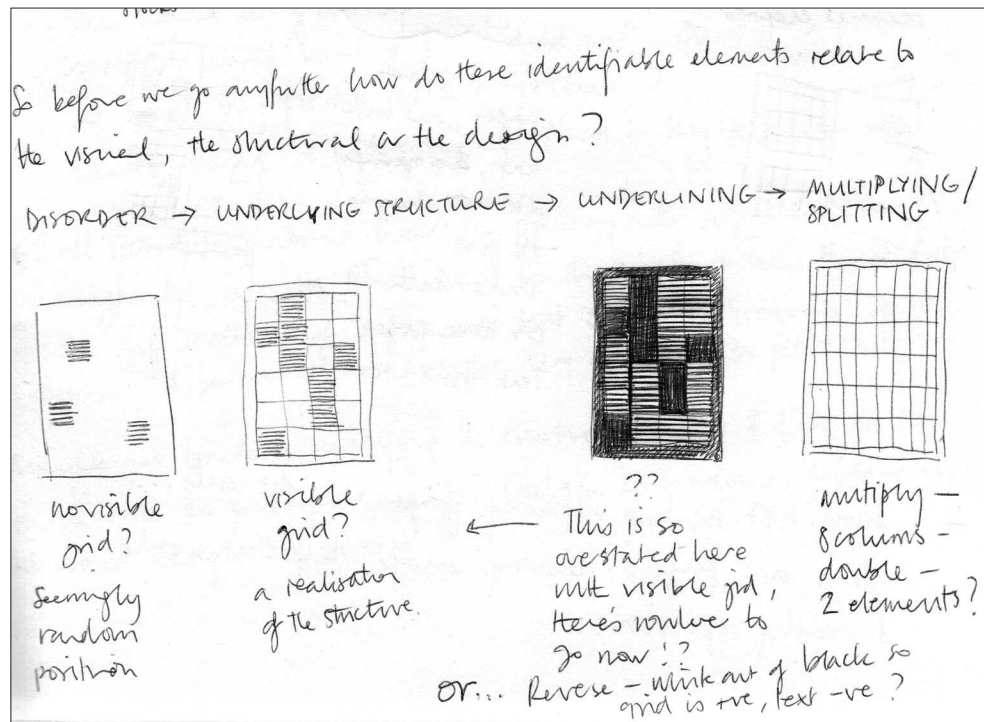 So before we go anyfutter how do these identifiable elements relate to
the visual, the structural or the design?
DISORDER → UNDERLYING STRUCTURE → UNDERLINING → MULTIPLYING/
SPLITTING
no visible
grid?
Seemingly
random
position
visible
grid?
a realisation
of the structure.
??
← This is so
overstated here
with visible grid,
there's nowhere to
go now!?
or... Reverse – white out of black so
grid is +ve, text -ve?
multiply –
8 colums –
double –
2 elements?